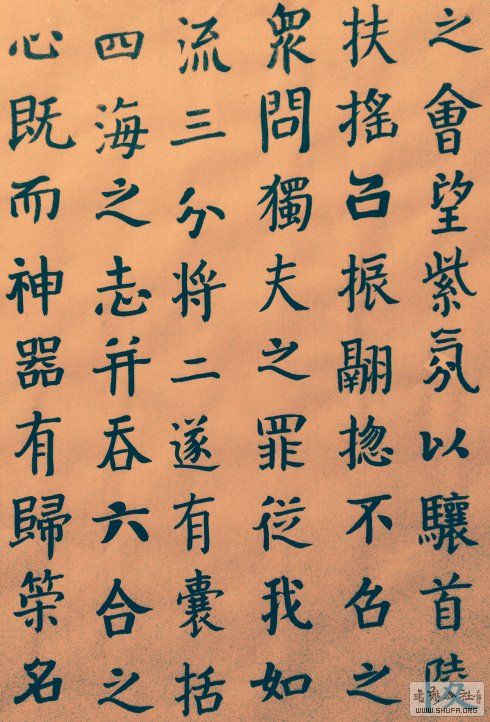 之會望紫氛以驤首陵
扶搖㠯振翮揔不召之
衆問獨夫之罪從我如
流三分将二遂有囊括
四海之志并吞六合之
心既而神器有歸築名
WWW.SHUFA.ORG